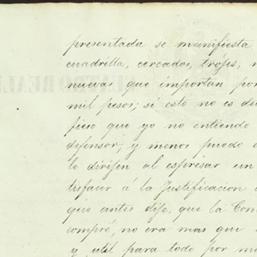 presentada se manifiesta
cuadrilla, cercados, trojes,
nuevas que importan por
mil pesos; si esto no es
que yo no entiendo
defensor; y menos puede
lo dirijen al espresar un
tisfacer a la justificacion
que antes dije, que la Con
compró, no era mas que
y util para todo por